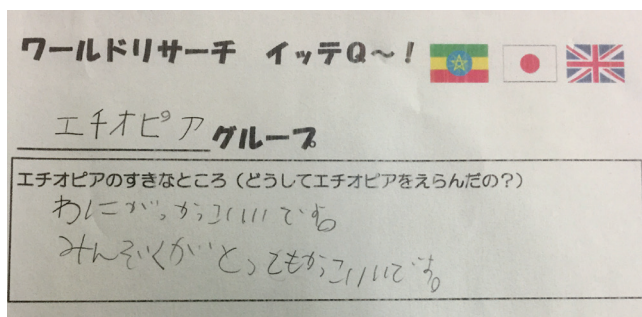 ワールドリサーチ イッテQ～！
エチオピアグループ
エチオピアのすきなところ（どうしてエチオピアをえらんだの？）
わにがかっこいいです
みんぞくがとってもかっこいいです。